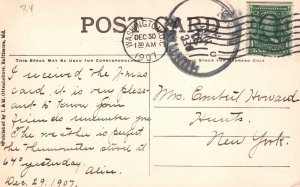 39
POST CARD
THIS SPACE MAY BE USED FOR CORRESPONDENCE
THIS SPACE FOR ADDRESS ONLY.
WASHINGTON
DEC 30
1 30 AM
1907
Published by I. & M. Ottenheimer, Baltimore, Md.
I received the Xmas
card it is very pleas-
ant to know your
friends do remember you
The weather is perfect
the thermometer stood at
64° yesterday
Alice.
Dec. 29. 1907.
Mrs. Howard
Hunts,
New York.